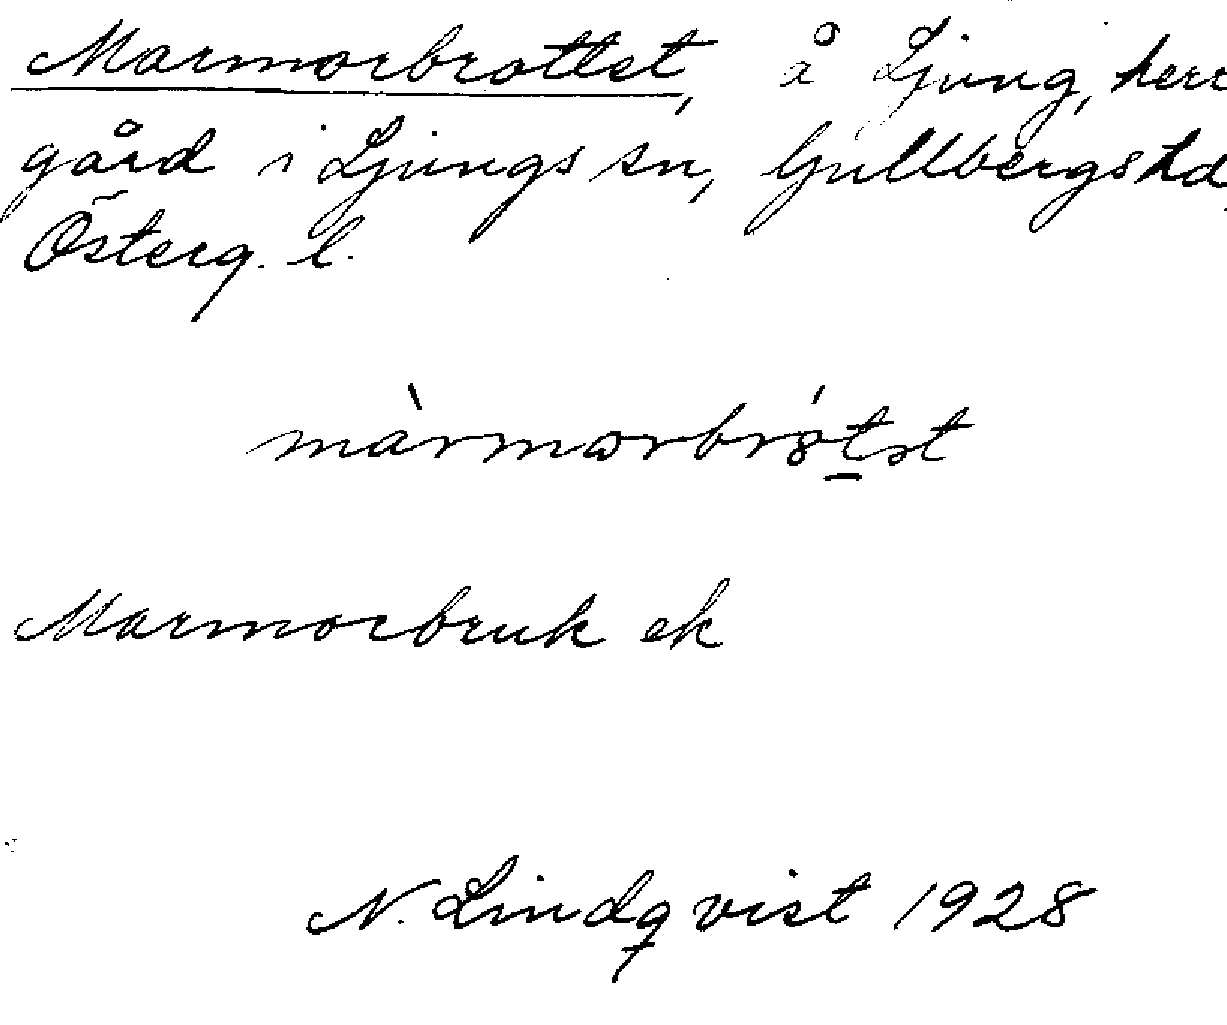 Marmorbrottet, å Ljung, herr
gård i Ljungs sn, Gullbergs hd,
Österg. l.
màrmorbrótət
Marmorbruk ek
N. Lindqvist 1928